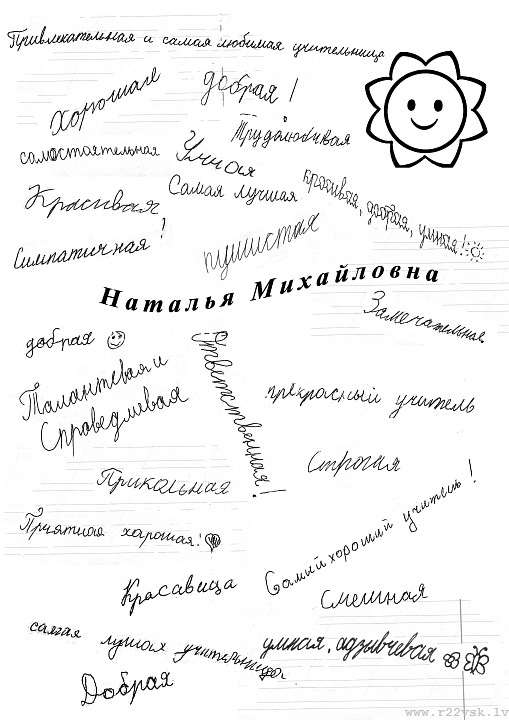 Привлекательная и самая любимая учительница
Хорошая
добрая!
Трудолюбивая
самостоятельная
Умная
Самая лучшая
красивая, добрая, умная!
Красивая
Симпатичная!
пушистая
Наталья Михайловна
Замечательная
добрая
Ответственная!
Талантевая и
Справедлевая
прекрасный учитель
Строгая
Прикольная
Приятная хорошая!
Самий хороший учитель!
Красавица
Смешная
самая лучшая учительница
умная, адзывчевая
Добрая
www.r22vsk.lv